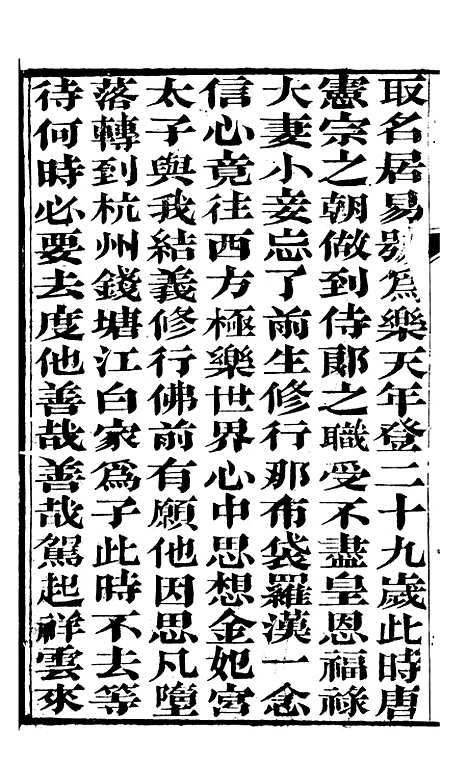 取名居易號爲樂天年登二十九歲此時唐
憲宗之朝做到侍郞之職受不盡皇恩福祿
大妻小妾忘了前生修行那布袋羅漢一念
信心竟往西方極樂世界心中思想金妃宮
太子與我結義修行佛前有願他因思凡墮
落轉到杭州錢塘江白家爲子此時不去等
待何時必要去度他善哉善哉駕起祥雲來